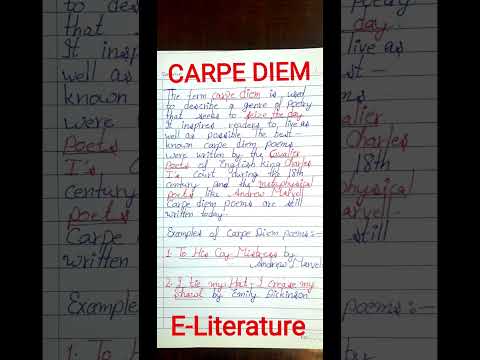 CARPE DIEM
The term carpe diem is used
to describe a genre of poetry
that seeks to seize the day.
It inspires readers to live as
well as possible. The best-
known carpe diem poems
were written by the Cavalier
Poets of English King Charles
I's Court during the 18th
century and the metaphysical
poets like Andrew Marvel.
Carpe diem poems are still
written today.
Examples of Carpe Diem poems:-
1. To His Coy Mistress by
Andrew Marvel
2. I tie my Hat, I crease my
Shawl by Emily Dickinson
E-Literature